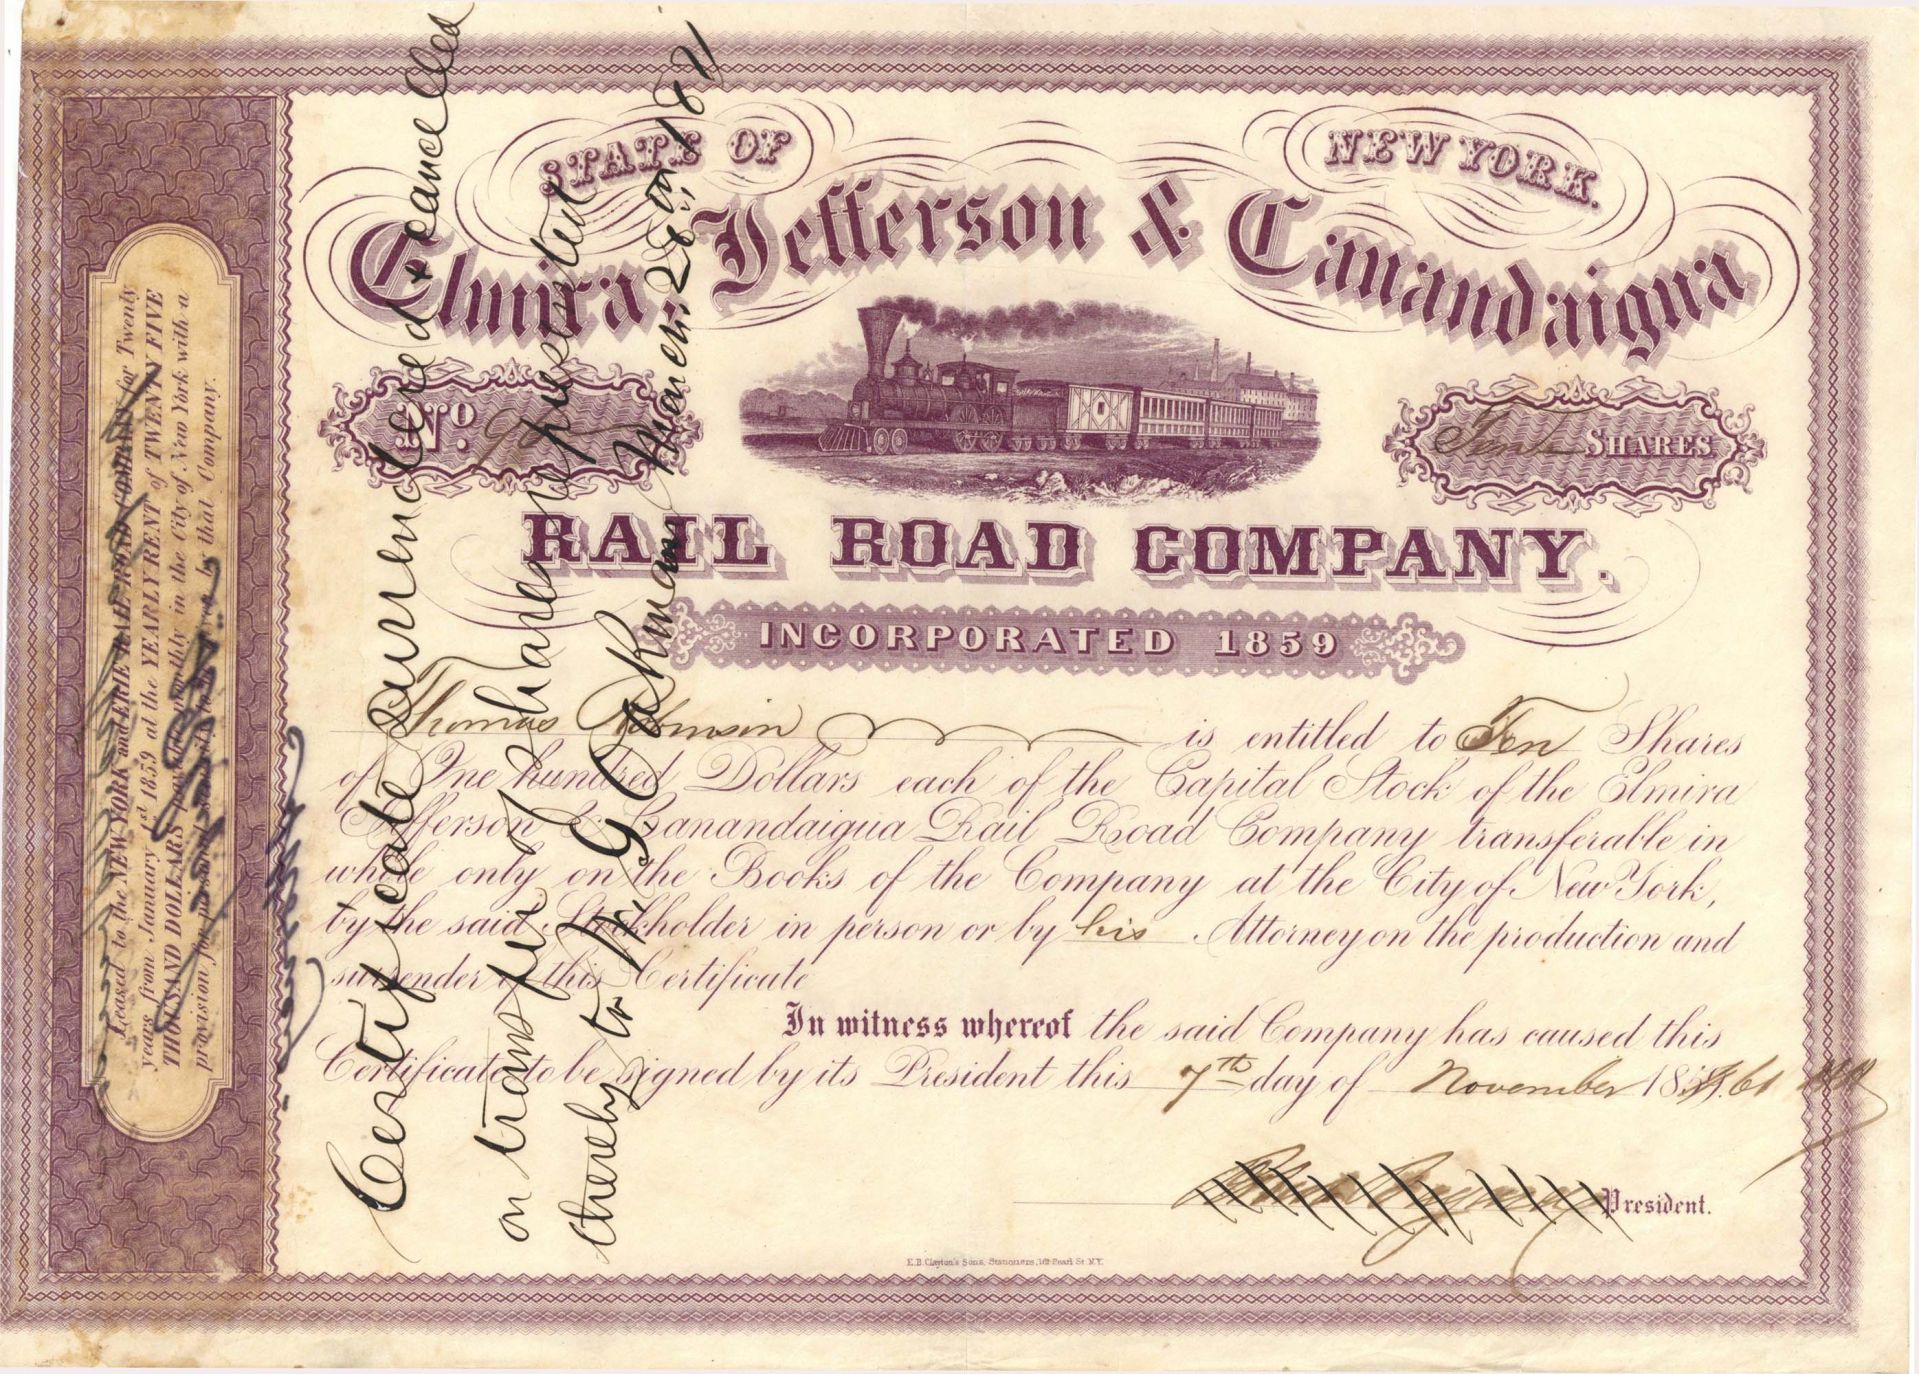 STATE OF NEW YORK.
Elmira, Jefferson & Canandaigua
No. 92
Ten SHARES
RAIL ROAD COMPANY.
INCORPORATED 1859
Thomas Robinson is entitled to Ten Shares
of One hundred Dollars each of the Capital Stock of the Elmira
Jefferson & Canandaigua Rail Road Company transferable in
whole only on the Books of the Company at the City of New York,
by the said Stockholder in person or by his Attorney on the production and
surrender of this Certificate
In witness whereof the said Company has caused this
Certificate to be signed by its President this 7th day of November 1861
President.
E.B. Clayton's Sons, Stationers, 161 Pearl St. N.Y.
Leased to the NEW YORK and ERIE RAIL ROAD COMPANY for Twenty
years from January 1st 1859 at the YEARLY RENT of TWENTY FIVE
THOUSAND DOLLARS payable monthly in the City of New York with a
provision for by that Company.
Certificate surrendered & cancelled
on transfer of shares represented
thereby to W. G. Oakman March 28th 1871